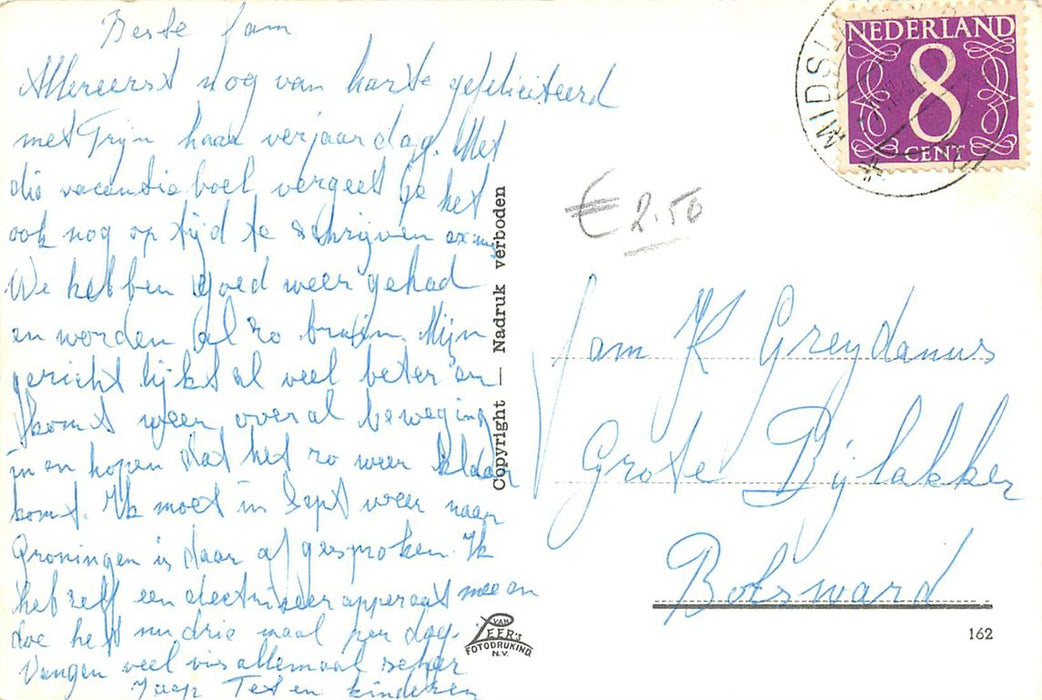 Beste fam
Allereerst nog van harte gefeliciteerd
met Trijn haar verjaardag. Met
die vacantie boel vergeet je het
ook nog op tijd te schrijven
We hebben goed weer gehad
en worden al zo bruin. Mijn
gezicht lijkt al veel beter er
komt weer overal beweging
in en hopen dat het zo weer klaar
komt. Ik moet in Sept weer naar
Groningen is daar afgesproken. Ik
heb zelf een electriseer apparaat mee en
doe het nu drie maal per dag.
Vangen veel vis allemaal
Jaap Tet en kinderen
Copyright — Nadruk verboden
VAN
LEER's
FOTODRUKIND.
N.V.
MIDSL
NEDERLAND
8
CENT
€ 2.50
Fam K Greydanus
Grote Dijlakker
Bolsward
162